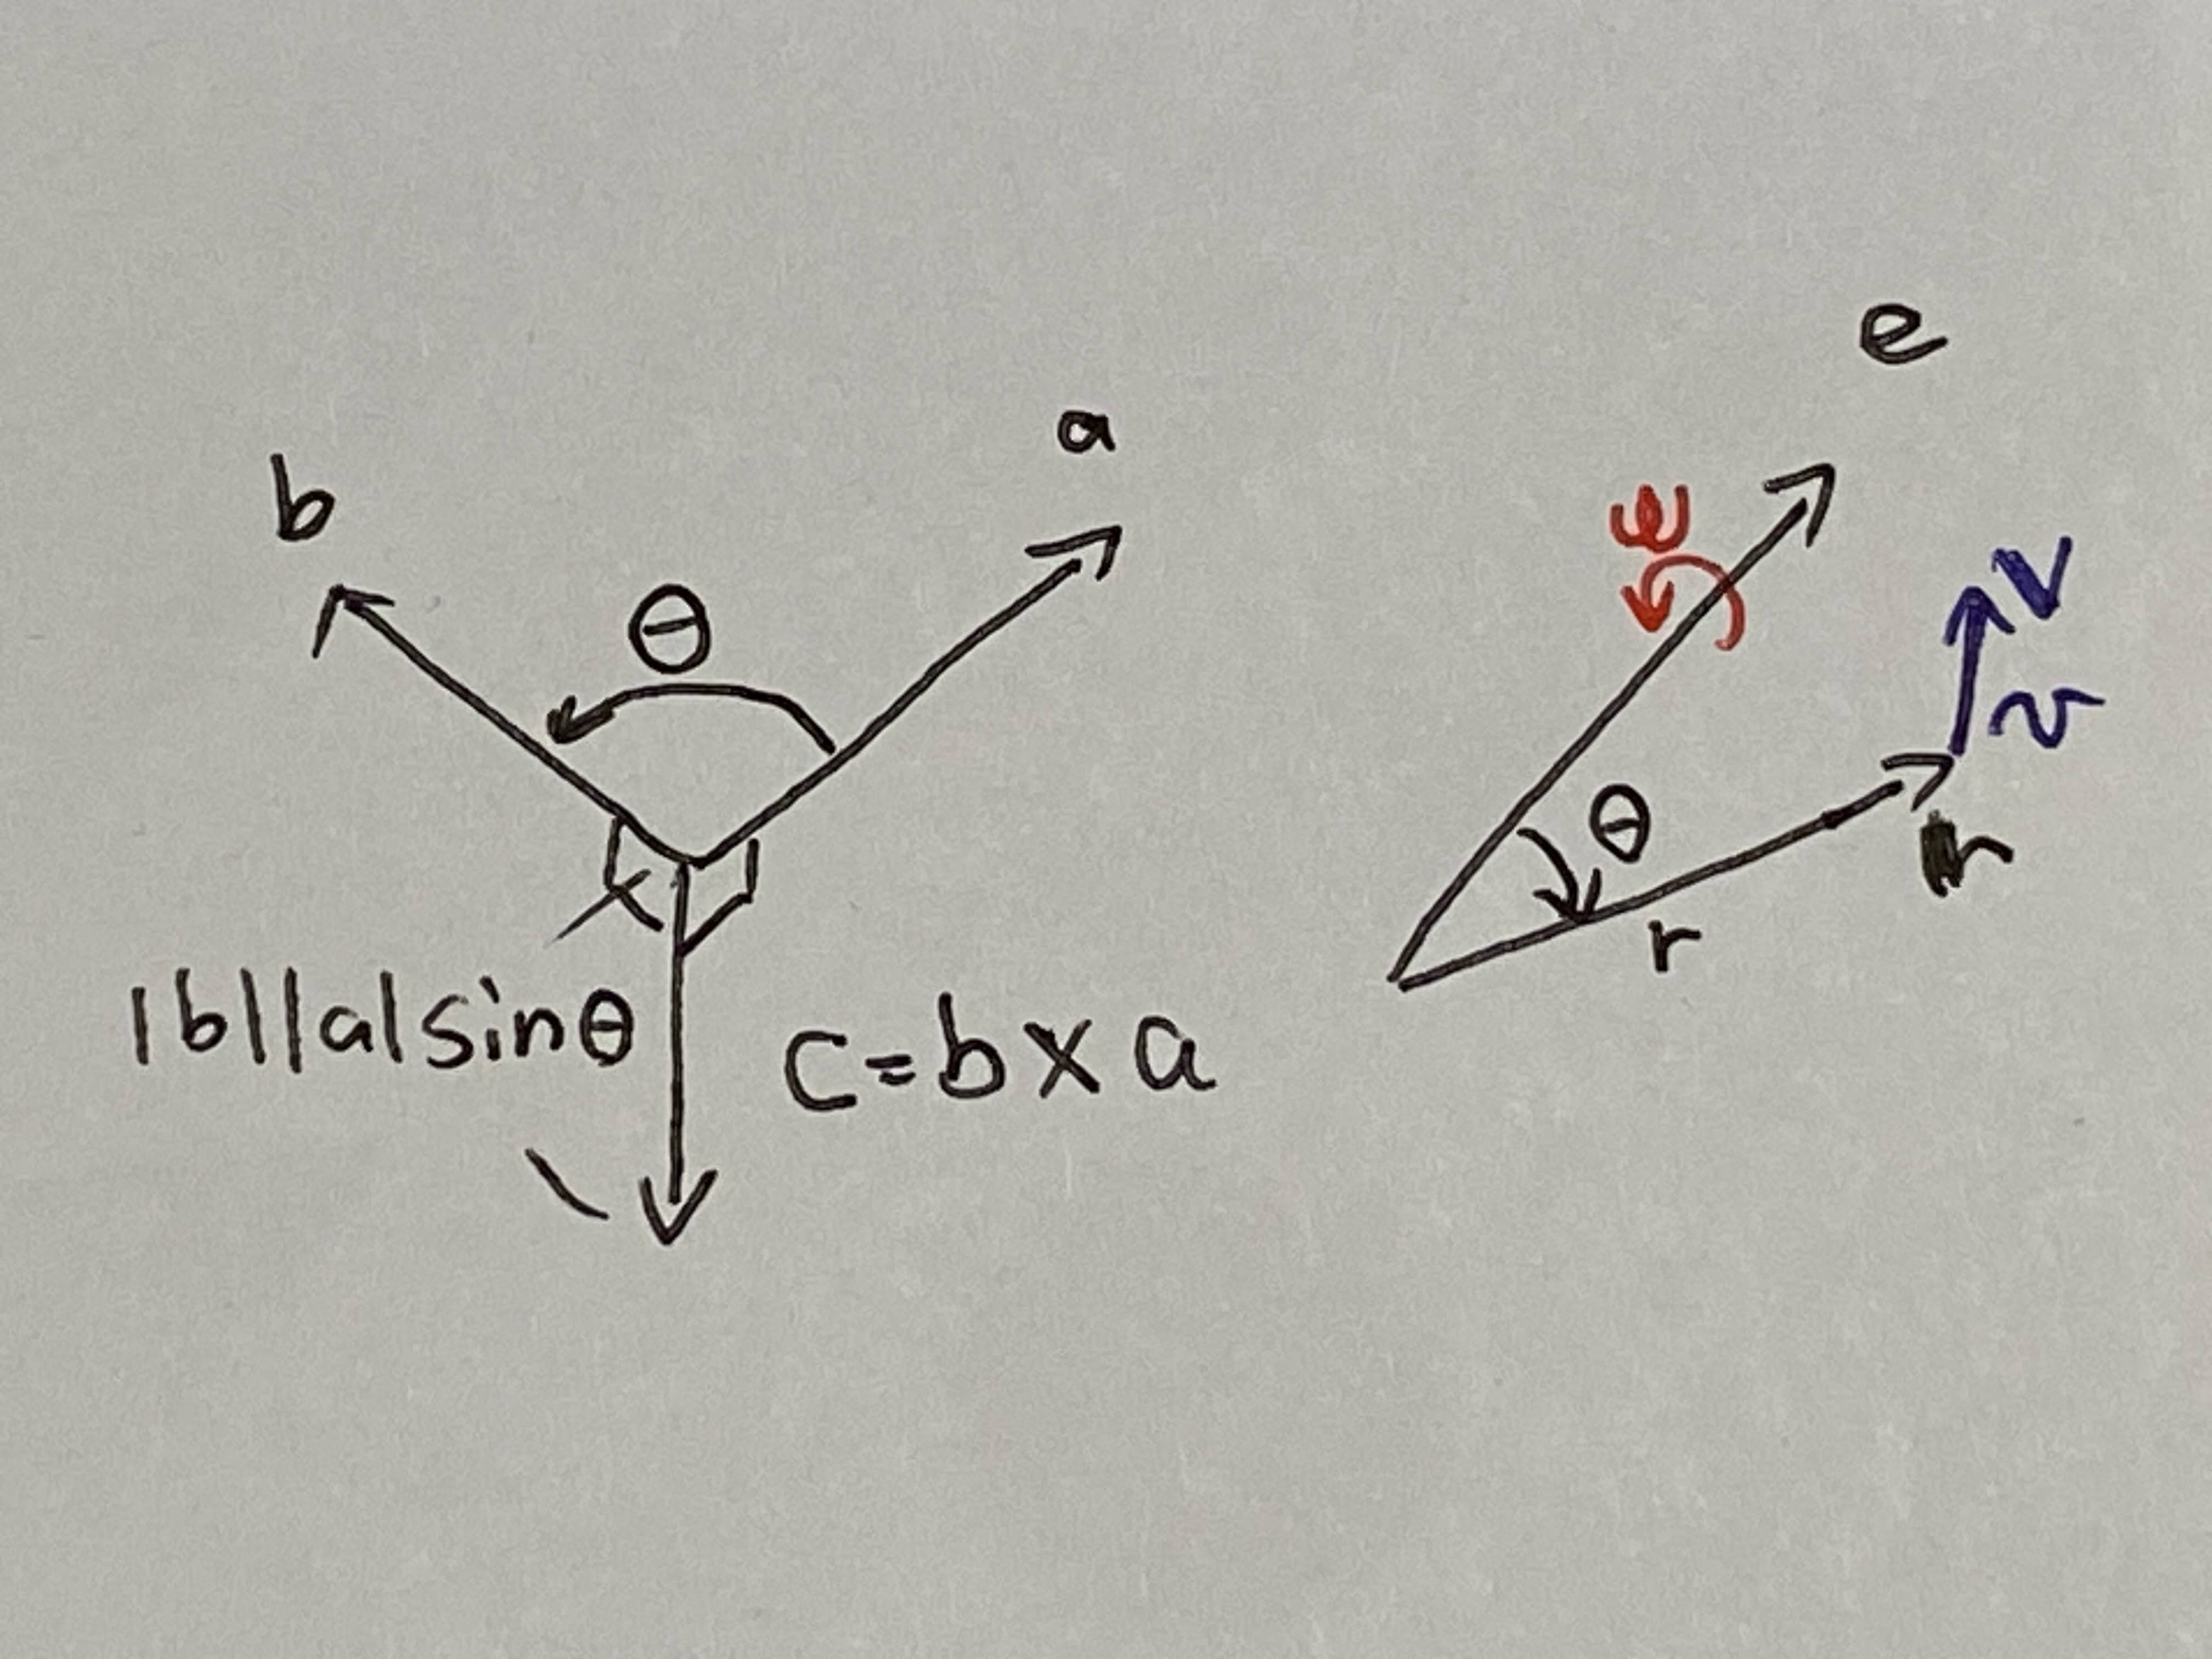 b
a
θ
|b||a|sinθ
c=b×a
e
ω
v
v
θ
r
r